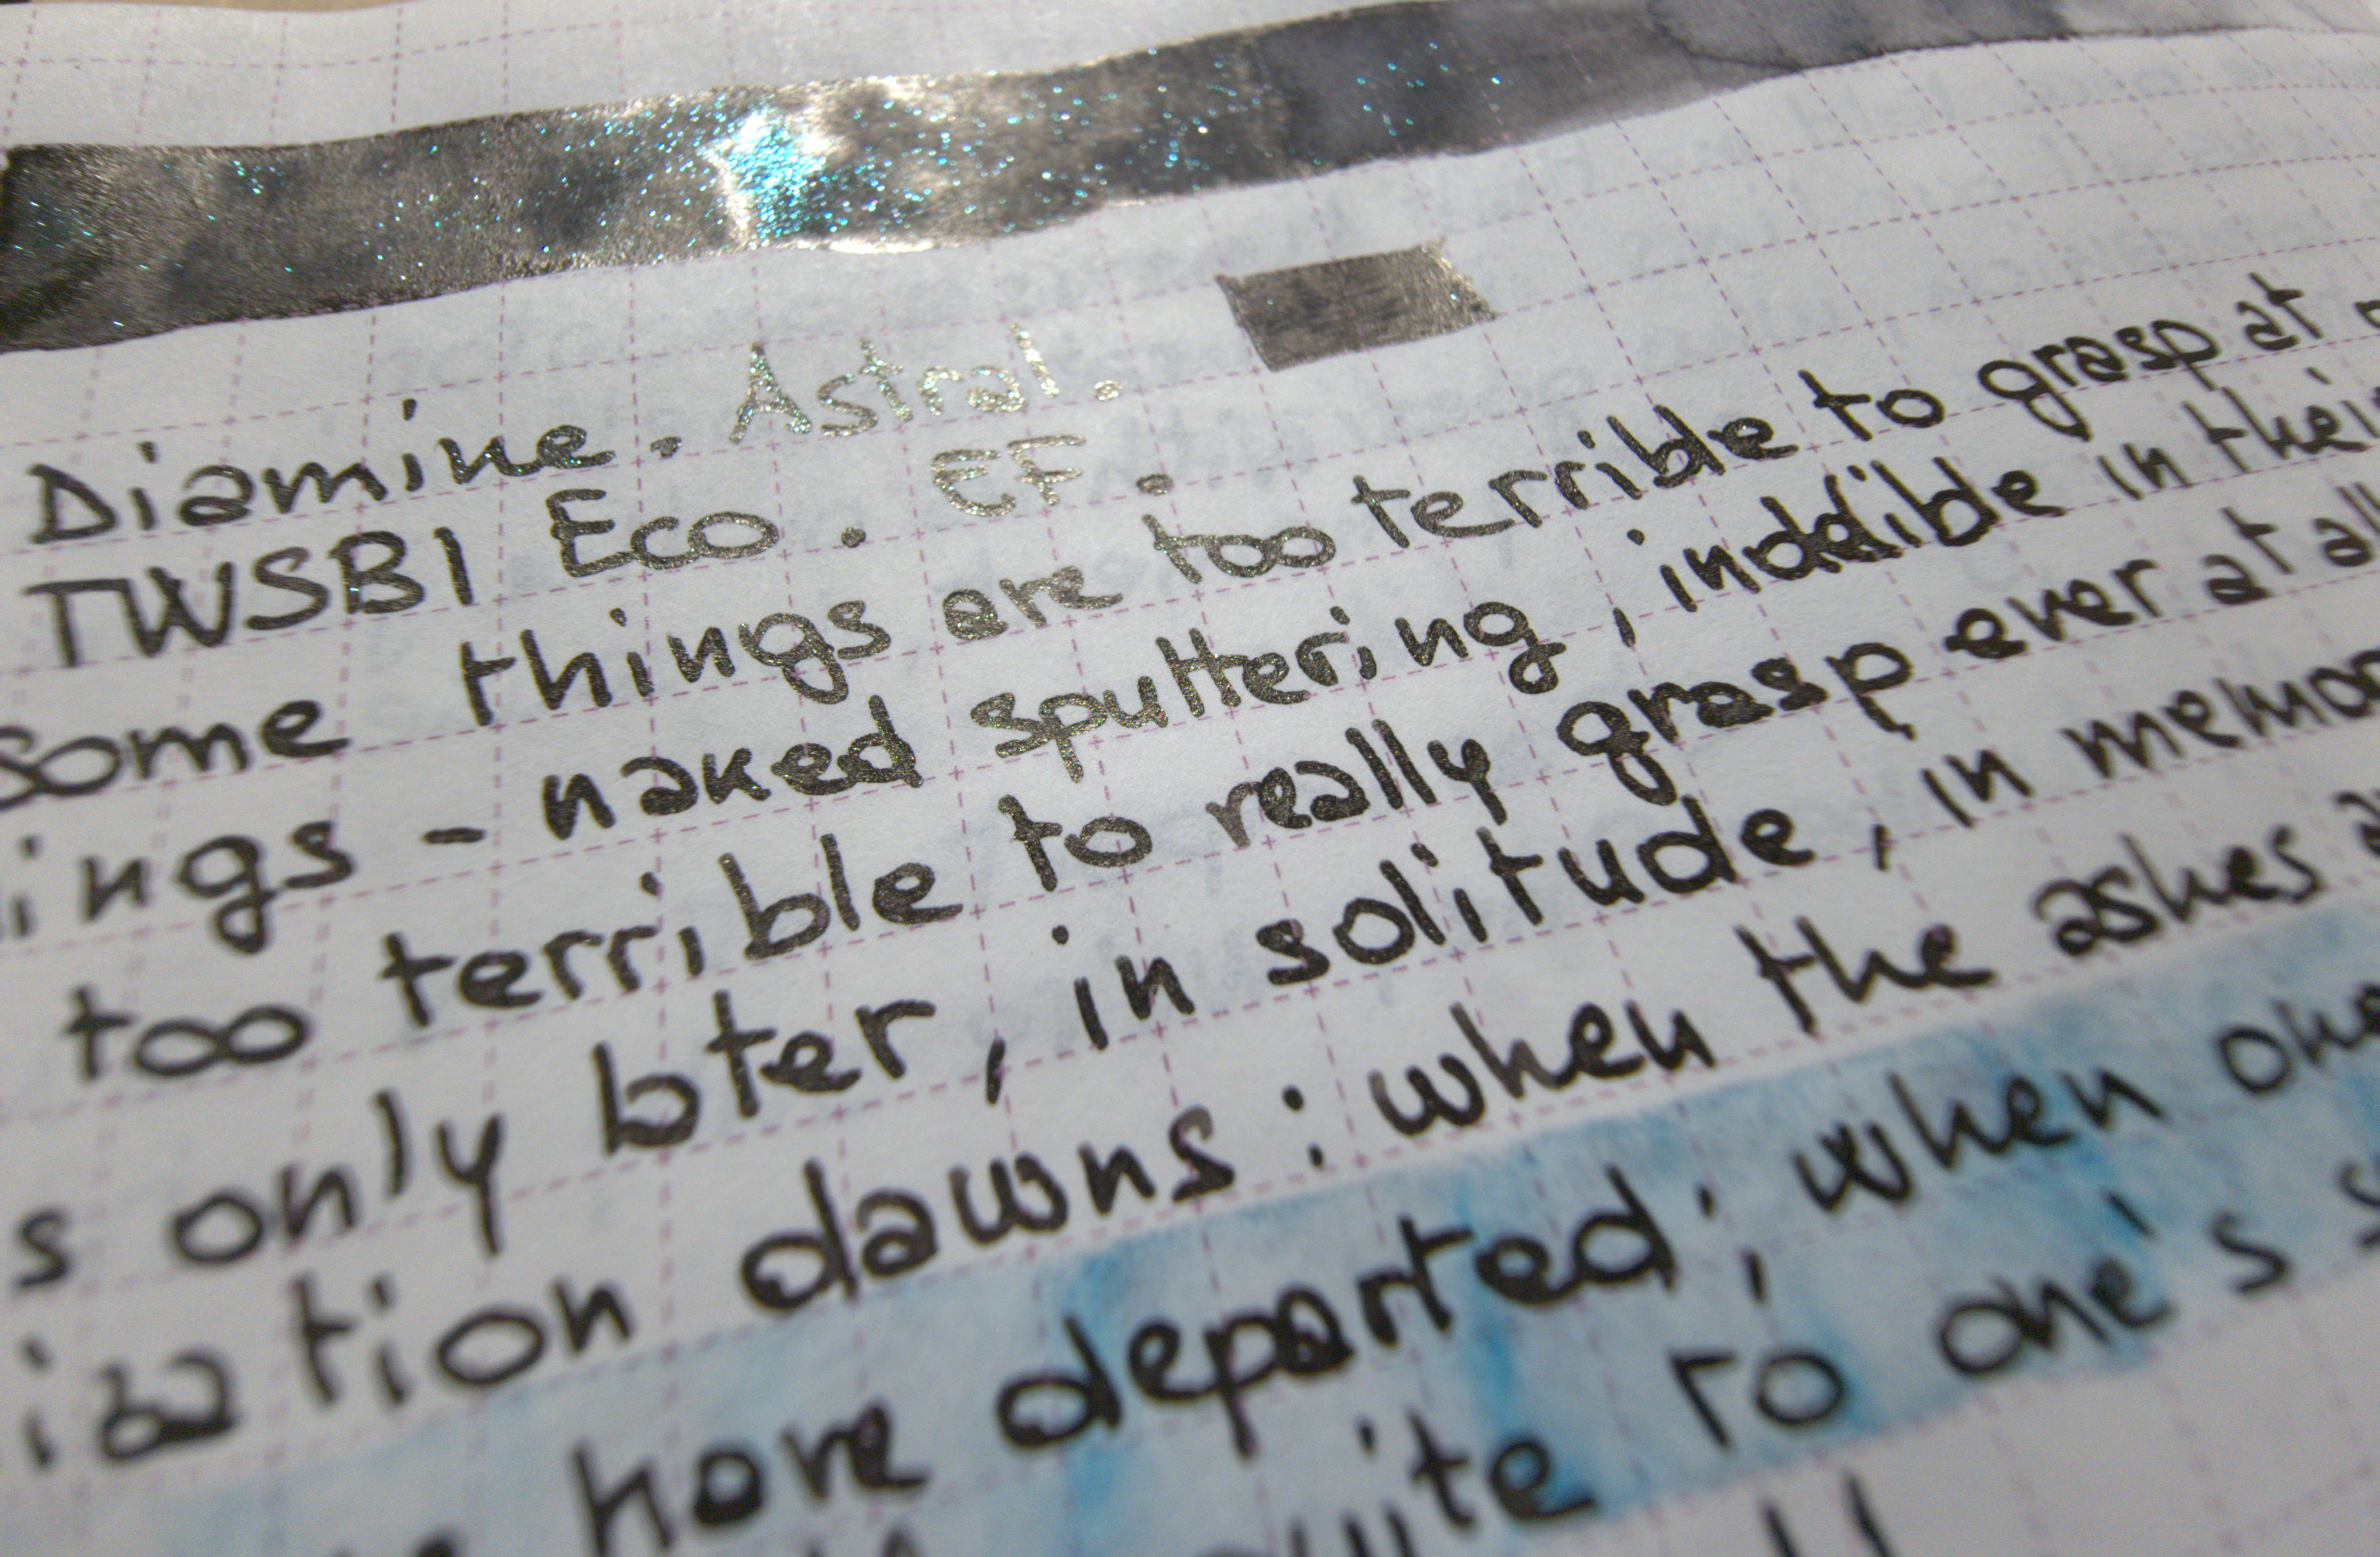 Diamine. Astral.
TWSBI Eco. EF.
some things are too terrible to grasp at
ings - naked sputtering, indelible in their
too terrible to really grasp ever at all
s only later, in solitude, in memor
ization dawns: when the ashes a
have departed; when one
to one's s